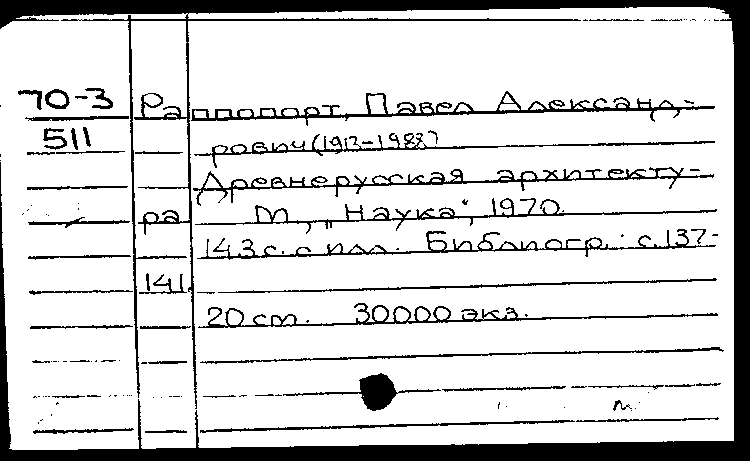 70-3 Раппопорт, Павел Александ-
511 рович (1913-1988)
Древнерусская архитекту-
ра М., „Наука", 1970
143 с. с илл. Библиогр.: с. 137-
141.
20 см. 30000 экз.
м